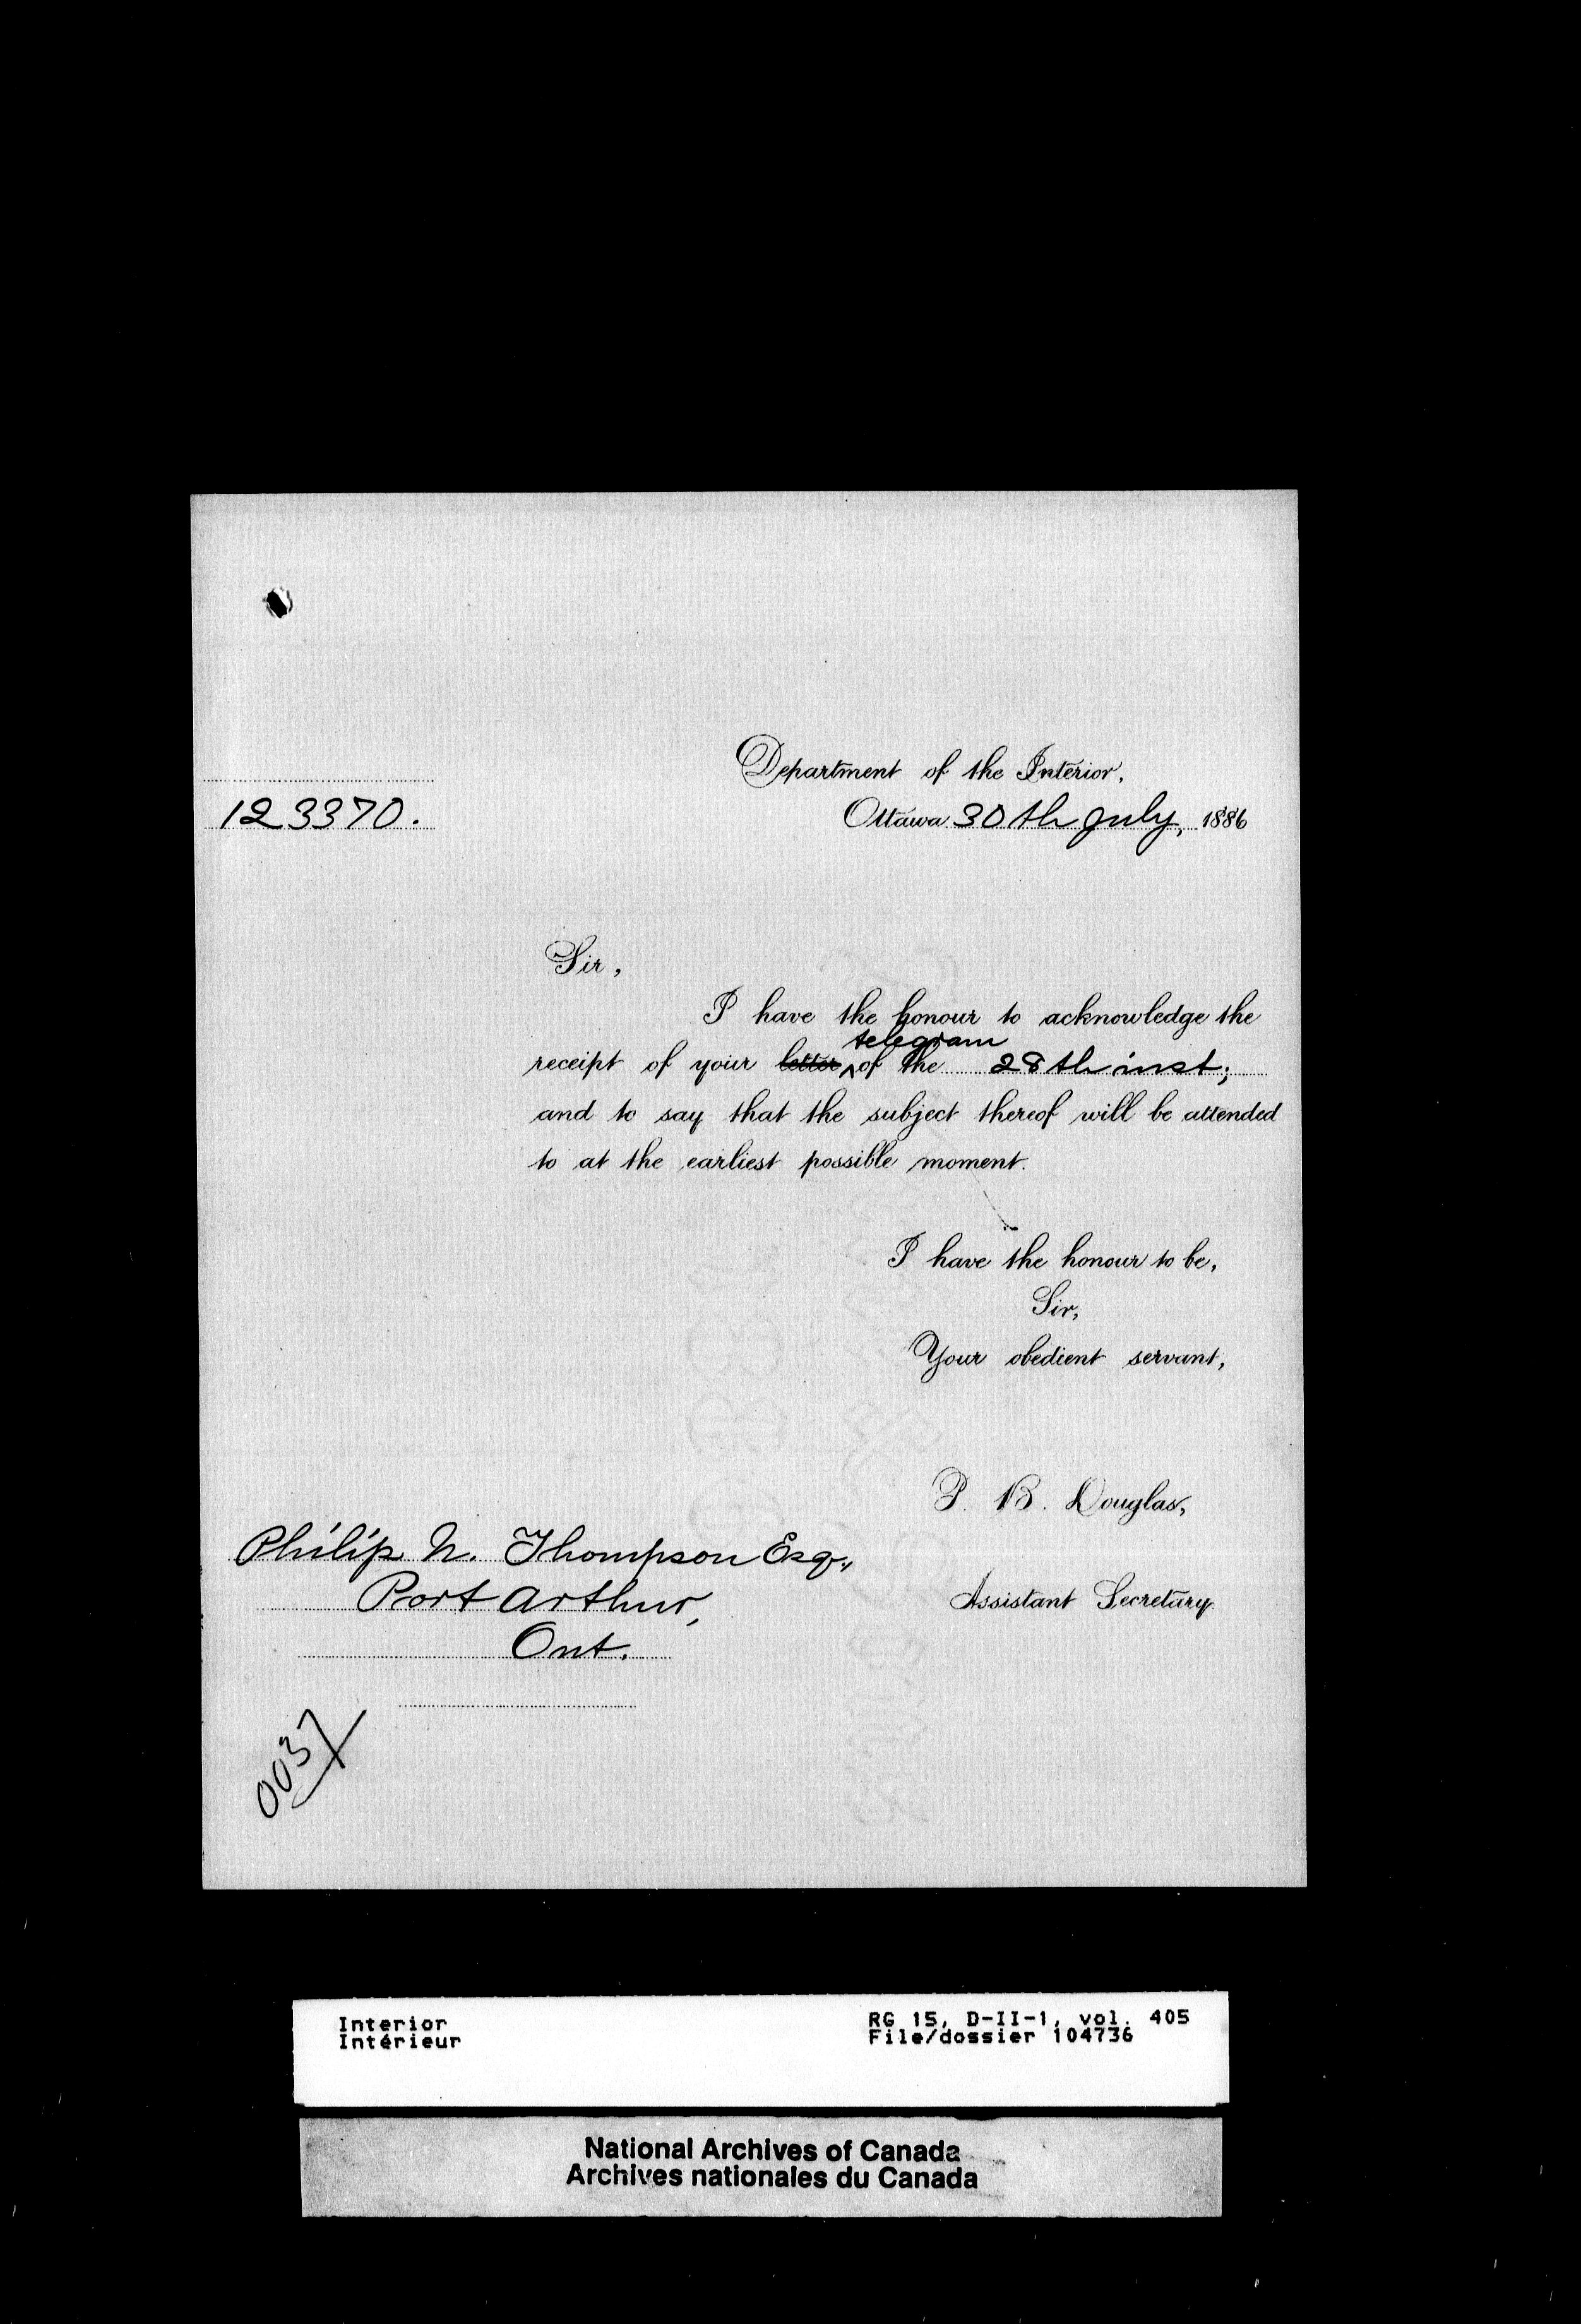 Department of the Interior,
123370.
Ottawa 30th July, 1886
Sir,
I have the honour to acknowledge the
telegram
receipt of your letter ^ of the 28th inst;
and to say that the subject thereof will be attended
to at the earliest possible moment.
I have the honour to be,
Sir,
Your obedient servant,
P. B. Douglas,
Assistant Secretary.
Philip N. Thompson Esq.,
Port Arthur,
Ont.
0037
Interior
Intérieur
RG 15, D-II-1, vol. 405
File/dossier 104736
National Archives of Canada
Archives nationales du Canada